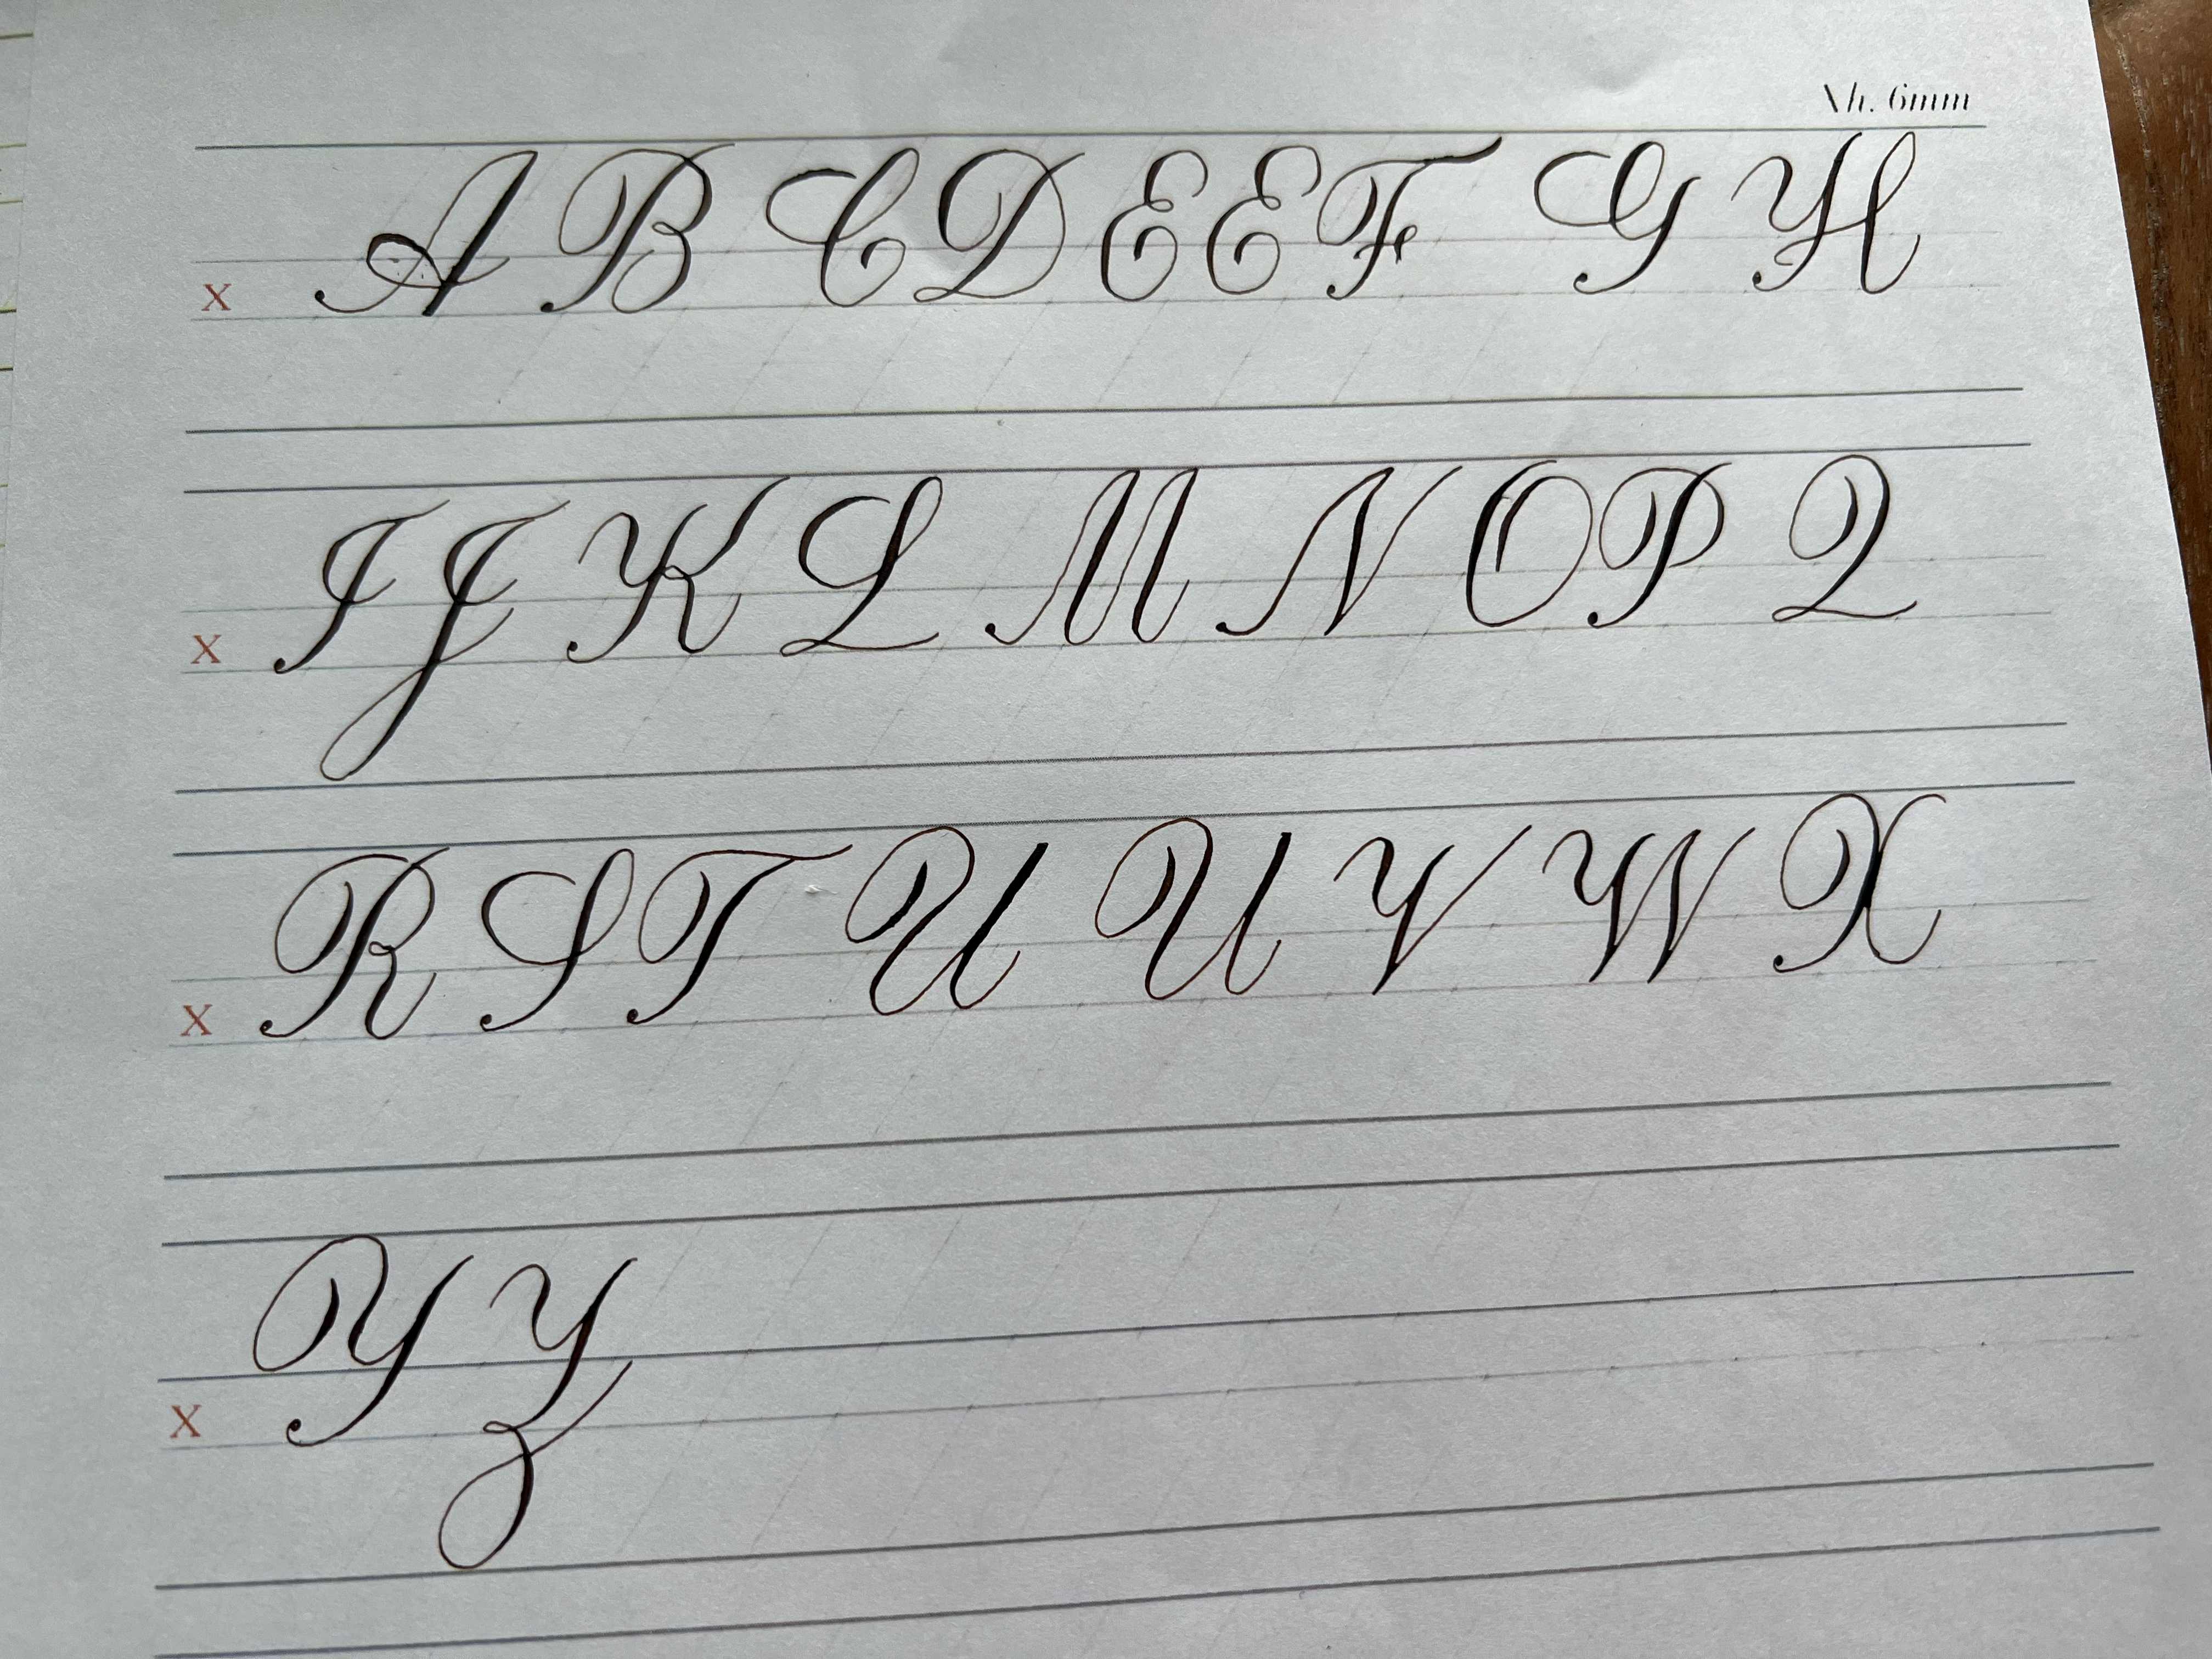 Xh. 6mm
x A B C D E E F G H
x I J K L M N O P Q
x R S T U U V W X
x Y Z